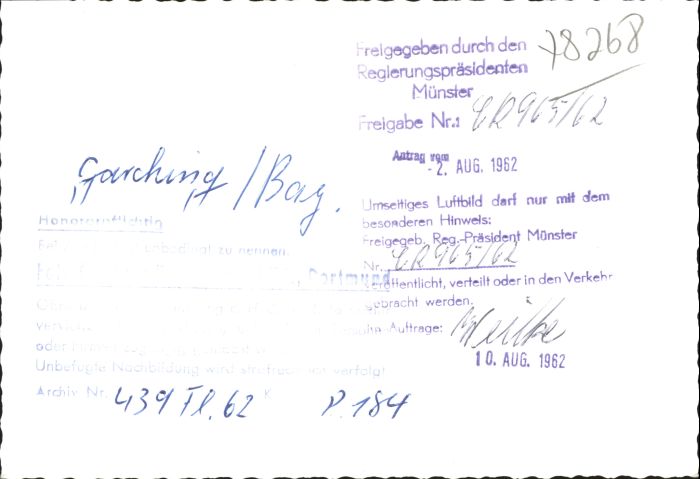 78268
Freigegeben durch den
Regierungspräsidenten
Münster
Freigabe Nr.: CR 965/62
Antrag vom
-2. AUG. 1962
Garching / Bay.
Umseitiges Luftbild darf nur mit dem
besonderen Hinweis:
Freigegeb. Reg.-Präsident Münster
Nr. CR 965/62
veröffentlicht, verteilt oder in den Verkehr
gebracht werden.
Auftrage:
10. AUG. 1962
Honorarpflichtig
zu nennen.
Dortmund
Unbefugte Nachbildung wird strafrechtlich verfolgt
Archiv Nr. 439 Fl. 62 K P. 184